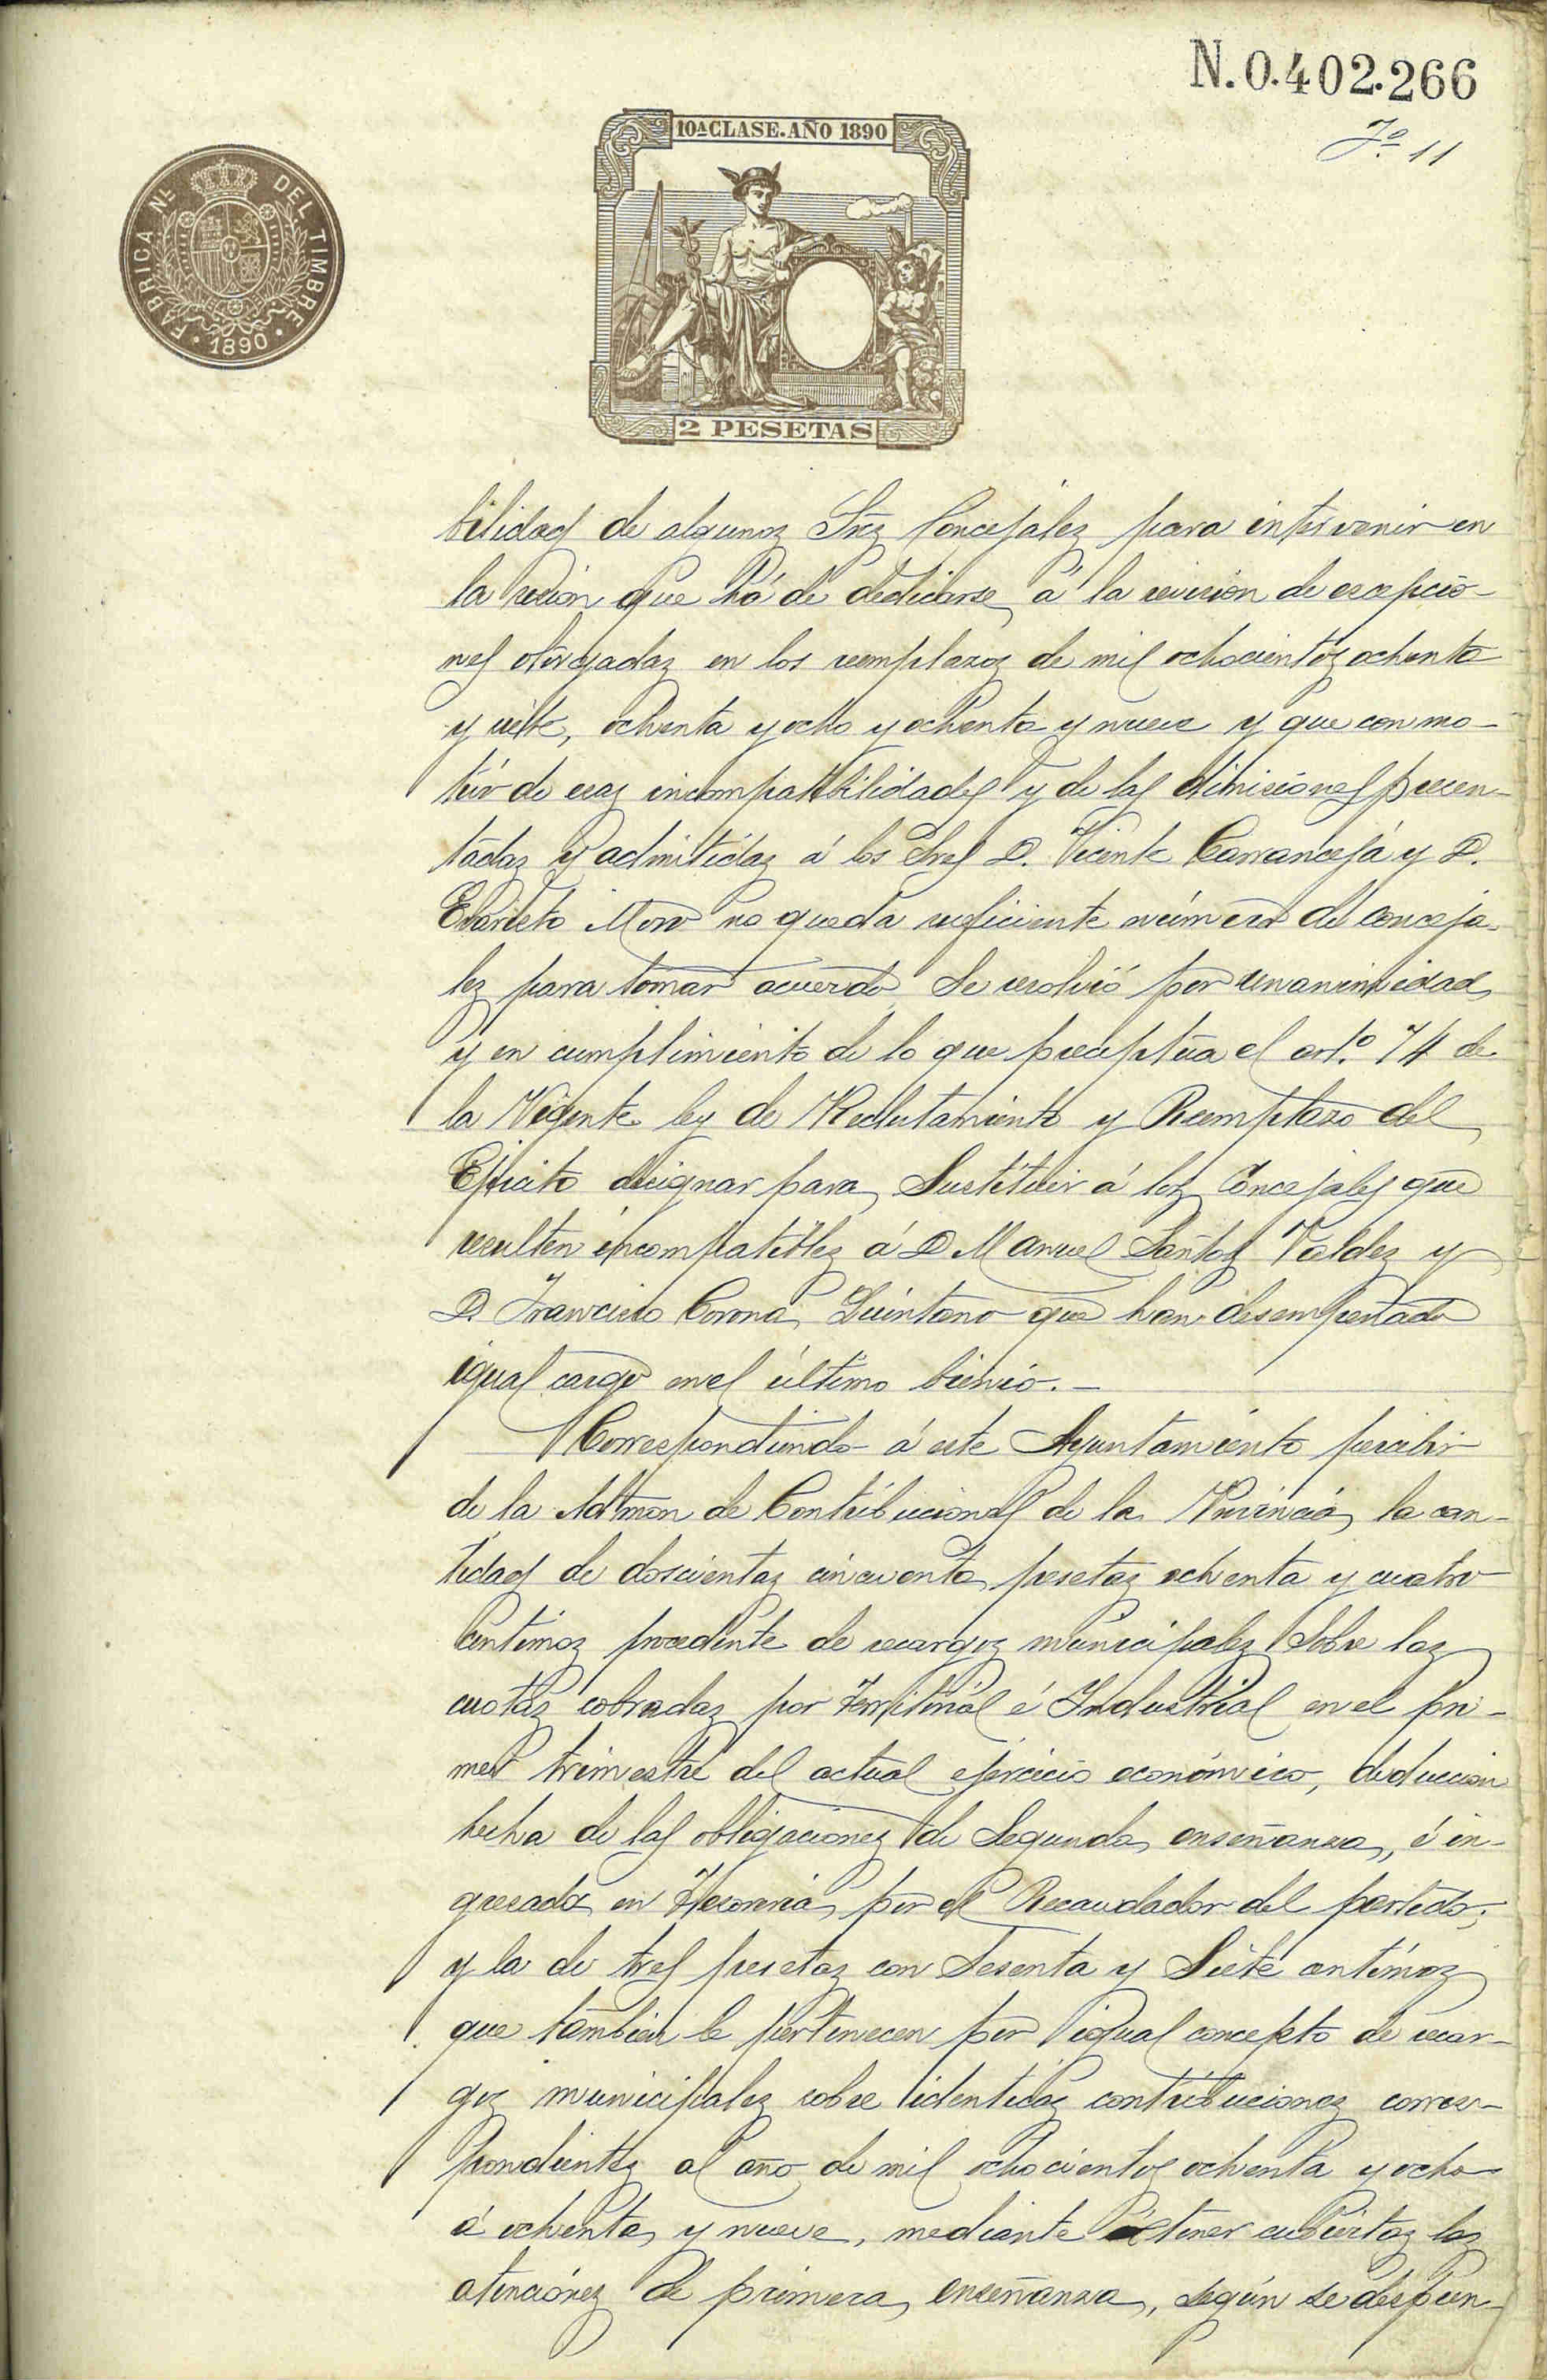 N.0.402.266
Fº 11
10ª CLASE. AÑO 1890
FABRICA Nᴸ DEL TIMBRE
· 1890 ·
2 PESETAS
bilidad de algunos Sres Concejales para intervenir en
la sesion que há de dedicarse á la revision de escepcio-
nes otorgadas en los reemplazos de mil ochocientos ochenta
y siete, ochenta y ocho y ochenta y nueve y que con mo-
tivo de esas incompatibilidades y de las dimisiones presen-
tadas y admitidas á los Sres D. Vicente Carrancejá y D.
Evaristo Moro no queda suficiente número de conceja-
les para tomar acuerdo, Se resolvió por unanimidad
y en cumplimiento de lo que preceptúa el artº. 74 de
la Vigente ley de Reclutamiento y Reemplazo del
Ejército designar para Sustituir á los Concejales que
resulten incompatibles á D Manuel Santos Valdes y
D. Francisco Corona Quintano que han desempeñado
igual cargo en el último bienio. —
Correspondiendo á este Ayuntamiento percibir
de la Admon de Contribuciones de la Provincia, la can-
tidad de doscientas cincuenta pesetas ochenta y cuatro
centimos procedente de recargos municipales Sobre las
cuotas cobradas por territorial é Industrial en el pri-
mer trimestre del actual ejercicio económico, deduccion
hecha de las obligaciones de Segunda enseñanza, é in-
gresada en Tesoreria por el Recaudador del partido;
y la de tres pesetas con Sesenta y Siete centimos
que tambien le pertenecen por igual concepto de recar-
gos municipales sobre identicas contribuciones corres-
pondientes al año de mil ochocientos ochenta y ocho
á ochenta y nueve, mediante á tener cubiertas las
atenciones de primera enseñanza, según se despren-